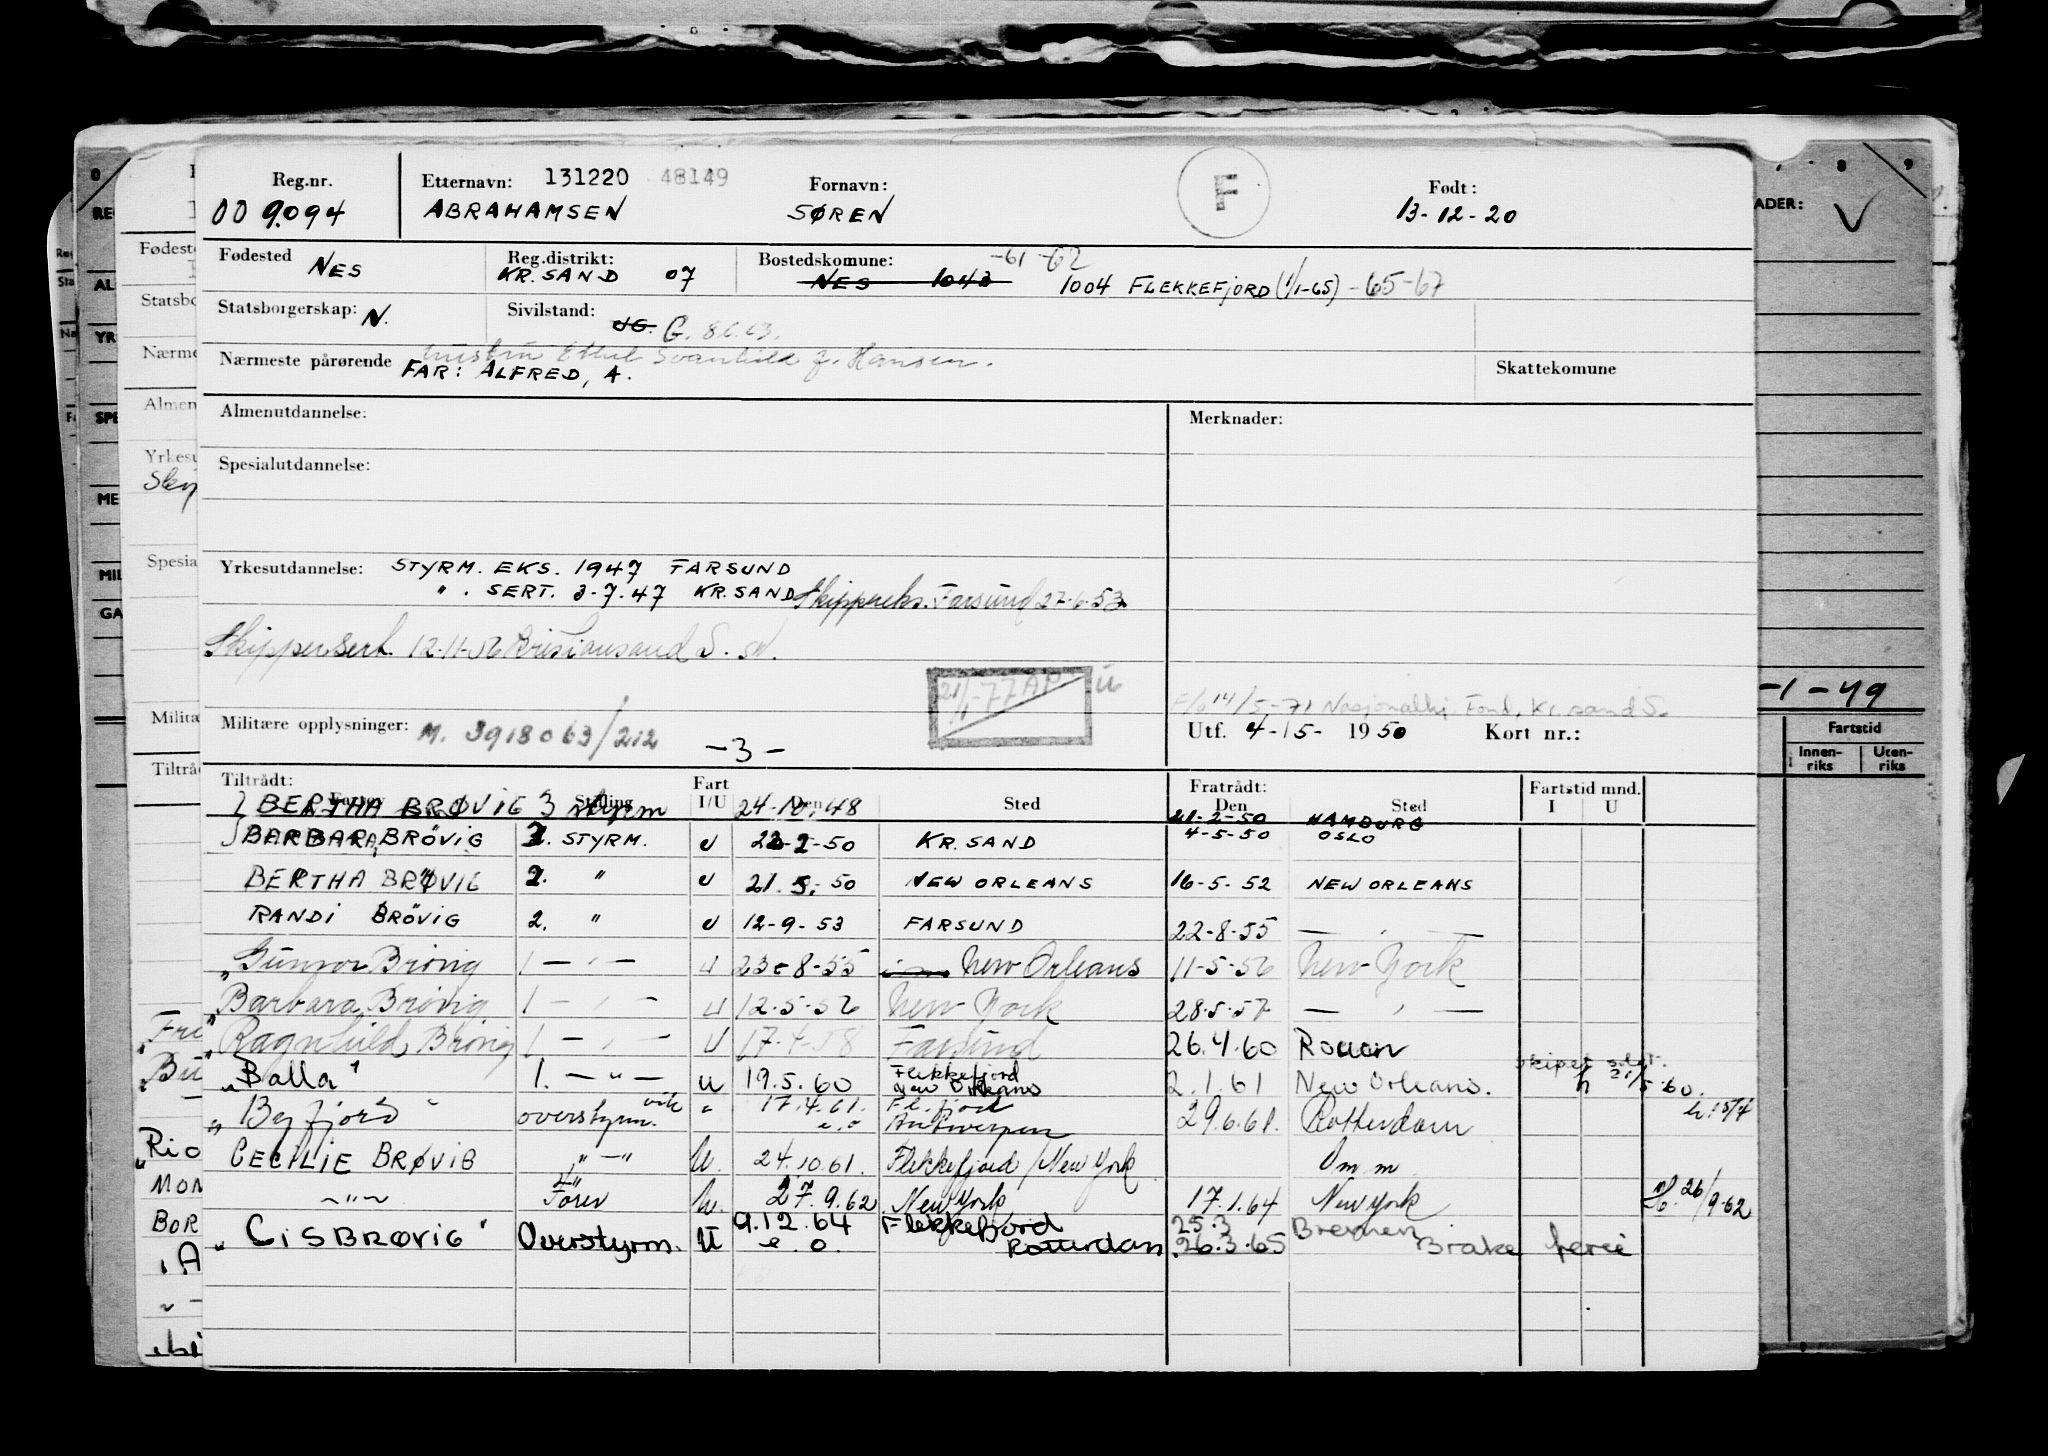 Reg.nr. Etternavn: 131220 48149 Fornavn: F Født:
00 9094 ABRAHAMSEN SØREN 13-12-20
Fødested NES Reg.distrikt: KR.SAND 07 Bostedskomune: NES 1043 -61-62 1004 FLEKKEFJORD (1/1-65) -65-67
Statsborgerskap: N. Sivilstand: UG. G.
Nærmeste pårørende Hansen.
FAR: ALFRED, A. Skattekomune
Almenutdannelse: Merknader:
Spesialutdannelse:
Yrkesutdannelse: STYRM. EKS. 1947 FARSUND
" . SERT. 3-7-47 KR.SAND Skippereks. Farsund 27-6-53
Skippersert. 12-11-56 Kristiansand S.
21/1-77 AP
14/5-71 Fond, Kr.sand S.
Militære opplysninger: M. 3918063/212 -3- Utf. 4-5- 1950 Kort nr.:
Tiltrådt: Fart Fratrådt: Fartstid mnd.
Stilling I/U Den Sted Den Sted I U
BERTHA BRØVIG 3 styrm 24-10-48 21-2-50 HAMBURG
BARBARA BRÖVIG 2. STYRM. U 22-2-50 KR.SAND 4-5-50 OSLO
BERTHA BRØVIG 2. " U 21.5.-50 NEW ORLEANS 16-5-52 NEW ORLEANS
RANDI BRÖVIG 2. " U 12-9-53 FARSUND 22-8-55 — " —
"Gunvor Brøvig 1 — " — U 23-8-55 New Orleans 11-5-56 New York
Barbara Brövig 1 — " — U 12.5-56 New York 28.5-57 — " —
"Ragnhild Brövig 1 — " — U 17-4-58 Farsund 26.4.60 Rouen
"Balla" 1. — " — U 19.5.60 Flekkefjord New Orleans 2.1.61 New Orleans. 21/5-60.
"Byfjord" overstyrm. vik " 17.4.61. Fl.fjord e.o Antwerpen 29.6.61. Rotterdam 15/4
CECILIE BRØVIG " — " U. 24.10.61. Flekkefjord / New York Omm.
— " — Fører U. 27.9.62 New York 17.1.64 New York 26/9-62
"CISBRØVIG" Overstyrm. U 9.12.64 Flekkefjord 25.3 Bremen
e.o. Rotterdam 26.3.65 Brake ferie
0
8 9
ADER:
-1-49
Fartstid
Innen-
riks
Uten-
riks
Fødeste
Statsbo
Nærme
Almen
Yrkesu
Spesia
Milita
Tiltråd
AL
YR
SPE
ME
MIL
GA
"Rio
MON
BOR